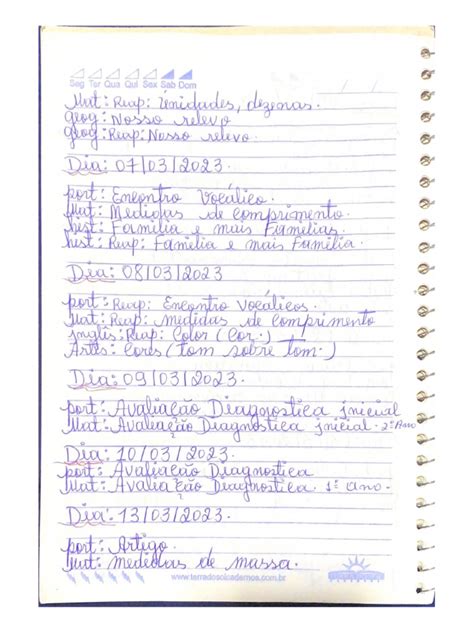 Seg Ter Qua Qui Sex Sab Dom
Mat: Reap: Unidades, dezenas.
geog: Nosso relevo
geog: Reap: Nosso relevo.
Dia: 07/03/2023.
port: Encontro Vocálico.
Mat: Medidas de comprimento.
hist: Família e mais Famílias.
hist: Reap: Família e mais Família.
Dia: 08/03/2023
port: Reap: Encontro vocálicos.
Mat: Reap: Medidas de comprimento
inglês: Reap: Color (Cor.)
Artes: Cores (tom sobre tom.)
Dia: 09/03/2023.
port: Avaliação Diagnostica inicial
Mat: Avaliação Diagnostica inicial. 2º Ano
Dia: 10/03/2023.
port: Avaliação Diagnostica
Mat: Avaliação Diagnostica. 1º ano.
Dia: 13/03/2023.
port: Artigo.
Mat: medidas de massa.
www.terradosolcadernos.com.br